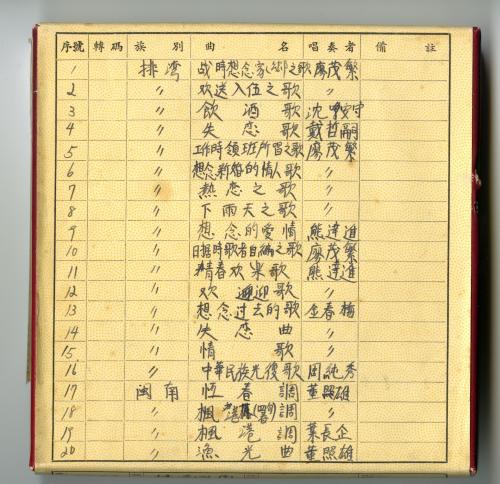 序號 轉碼 族別 曲名 唱奏者 備註
1 排湾 战時想念家(鄉)之歌 廖茂繁
2 〃 欢送入伍之歌 〃
3 〃 飲酒歌 沈 守
4 〃 失恋歌 戴哲嗣
5 〃 工作時領班所習之歌 廖茂繁
6 〃 想念新婚的情人歌 〃
7 〃 熱恋之歌 〃
8 〃 下雨天之歌 〃
9 〃 想念的愛情 熊達進
10 〃 日据時歌者自編之歌 廖茂繁
11 〃 青春欢樂歌 熊達進
12 〃 欢迎歌 〃
13 〃 想念过去的歌 金春梅
14 〃 失恋曲 〃
15 〃 情歌 〃
16 〃 中華民族光復歌 周純秀
17 閩南 恆春調 董照雄
18 〃 楓港(四季)調 〃
19 〃 楓港調 葉長企
20 〃 漁光曲 董照雄